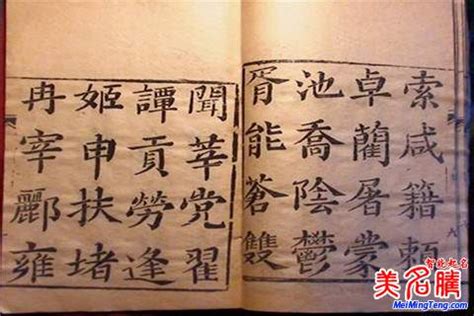 索咸籍頼
卓藺屠蒙
池喬陰鬱
胥能蒼雙
聞莘党翟
譚貢勞逢
姬申扶堵
冉宰酈雍
智能起名
美名腾
MeiMingTeng.com